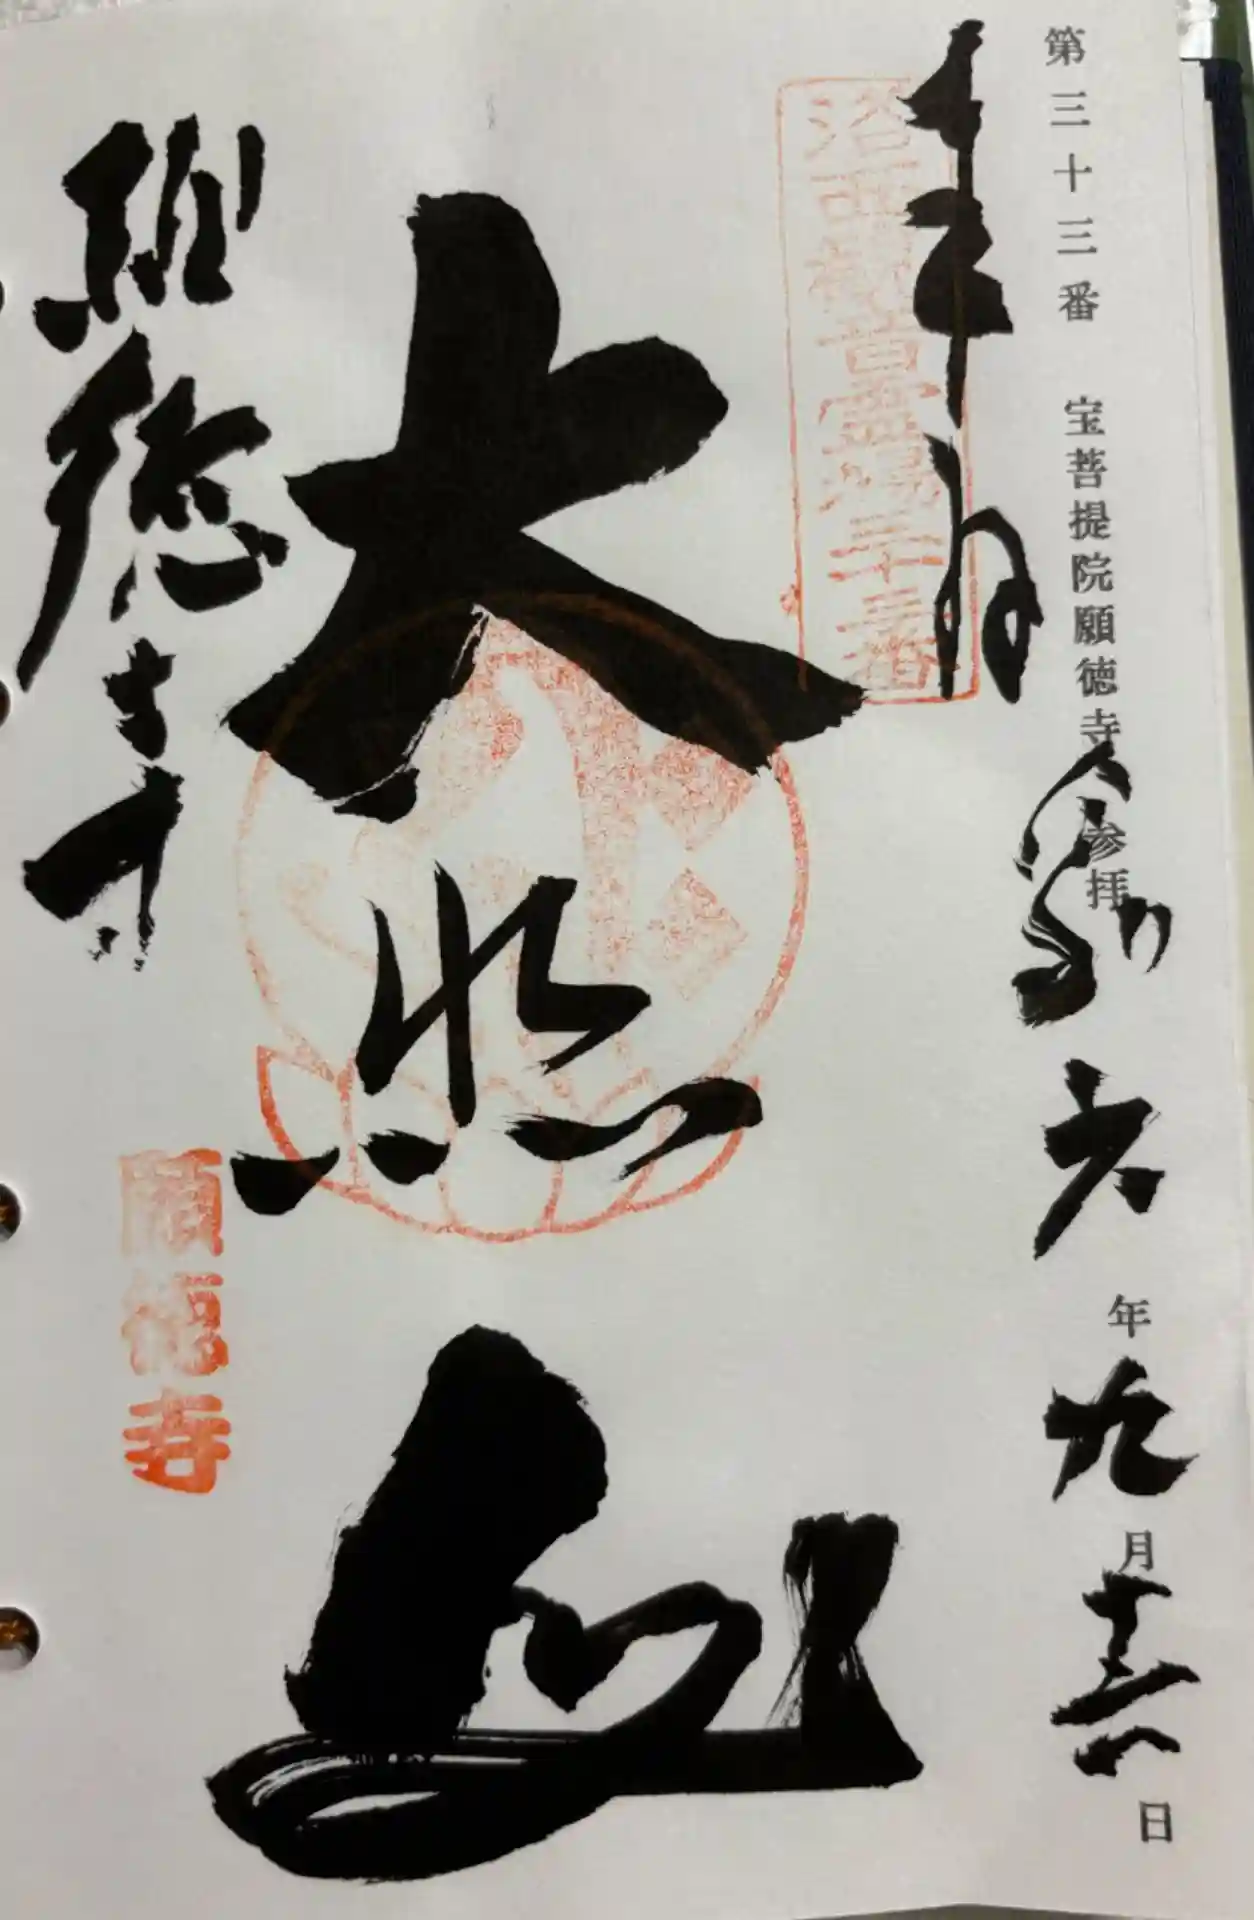 第三十三番 宝菩提院願徳寺 参拝
令和六年九月十六日
奉拝
洛西観音霊場三十三番
大悲山
願徳寺
願徳寺